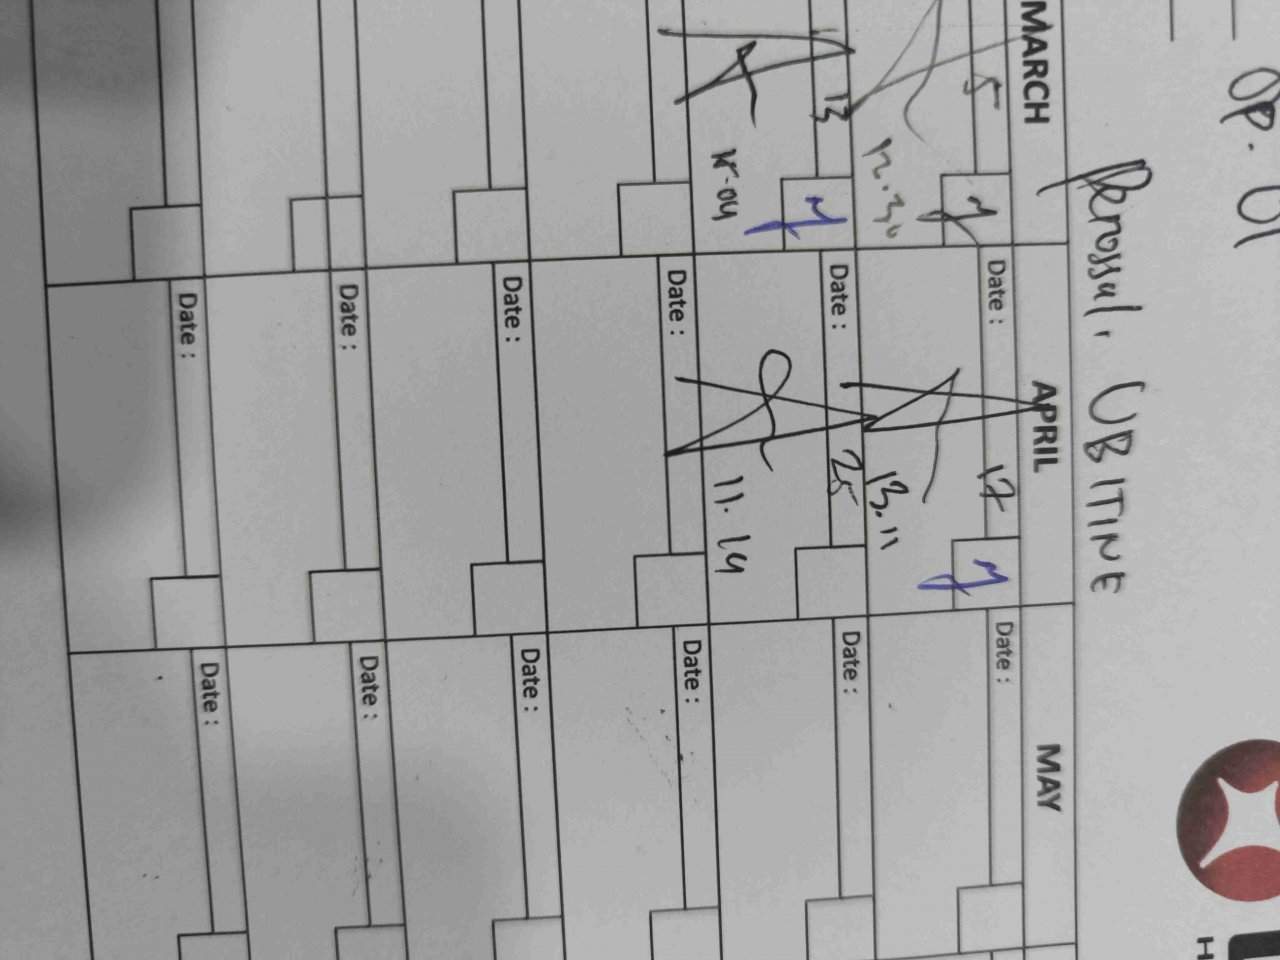 OP. 01
Perossul. UBITINE
MARCH APRIL MAY
5 Date : 17 Date :
12.30 13.11
13 Date : 25 Date :
11.14
Date : Date :
Date : Date :
Date : Date :
Date : Date :
H